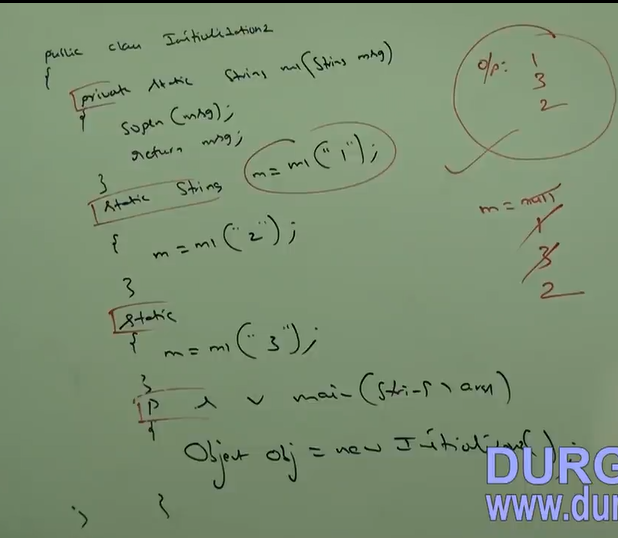 public class Initialization2
{
private static String m1(String msg)
{
sopln(msg);
return msg;
}
static String m = m1("1");
{
m = m1("2");
}
static
{
m = m1("3");
}
P s v main(String[] args)
{
Object obj = new Initialization2();
}
}
o/p: 1
3
2
m = null
1
3
2
DURG
www.dur